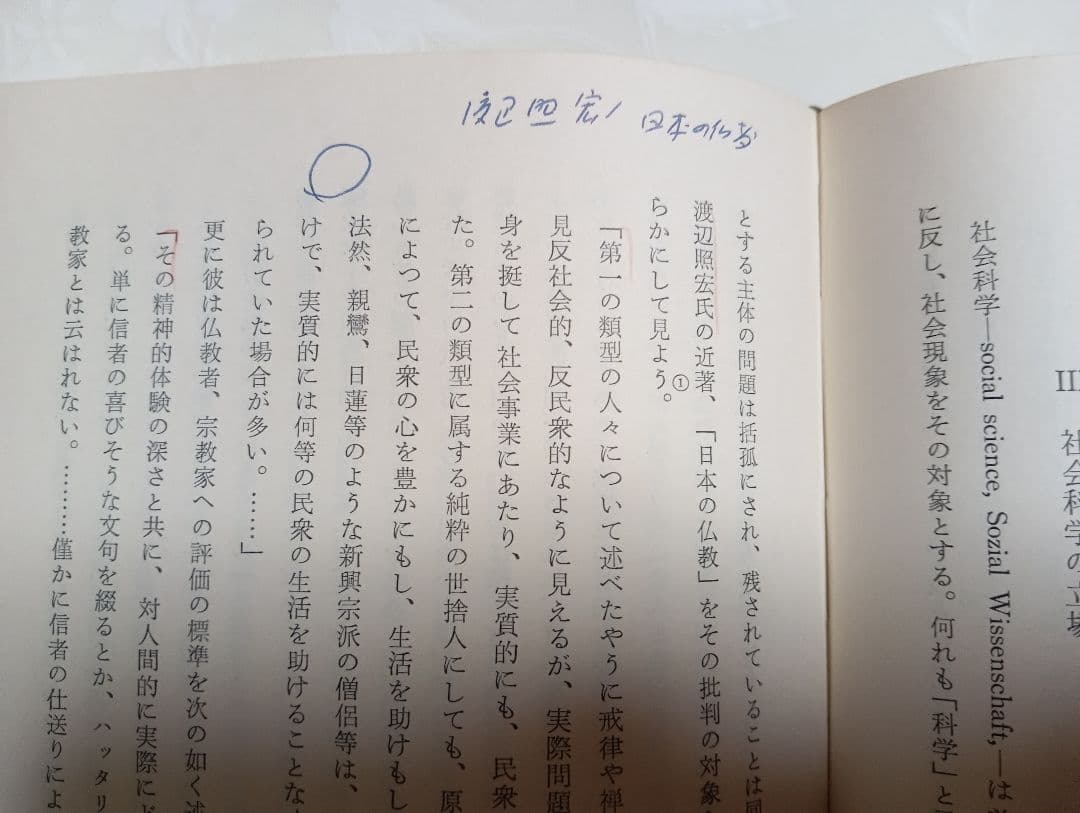 III 社会科学の立場
社会科学―social science, Sozial Wissenschaft,―は
に反し、社会現象をその対象とする。何れも「科学」と
渡辺照宏 日本の仏教
とする主体の問題は括孤にされ、残されていることは
渡辺照宏氏の近著、「日本の仏教」をその批判の対象
①
らかにして見よう。
「第一の類型の人々について述べたやうに戒律や禅
見反社会的、反民衆的なように見えるが、実際問題
身を挺して社会事業にあたり、実質的にも、民衆
た。第二の類型に属する純粋の世捨人にしても、原
によつて、民衆の心を豊かにもし、生活を助けもし
法然、親鸞、日蓮等のような新興宗派の僧侶等は、
けで、実質的には何等の民衆の生活を助けることな
られていた場合が多い。……」
更に彼は仏教者、宗教家への評価の標準を次の如く述
「その精神的体験の深さと共に、対人間的に実際に
る。単に信者の喜びそうな文句を綴るとか、ハッタリ
教家とは云はれない。………僅かに信者の仕送りによ